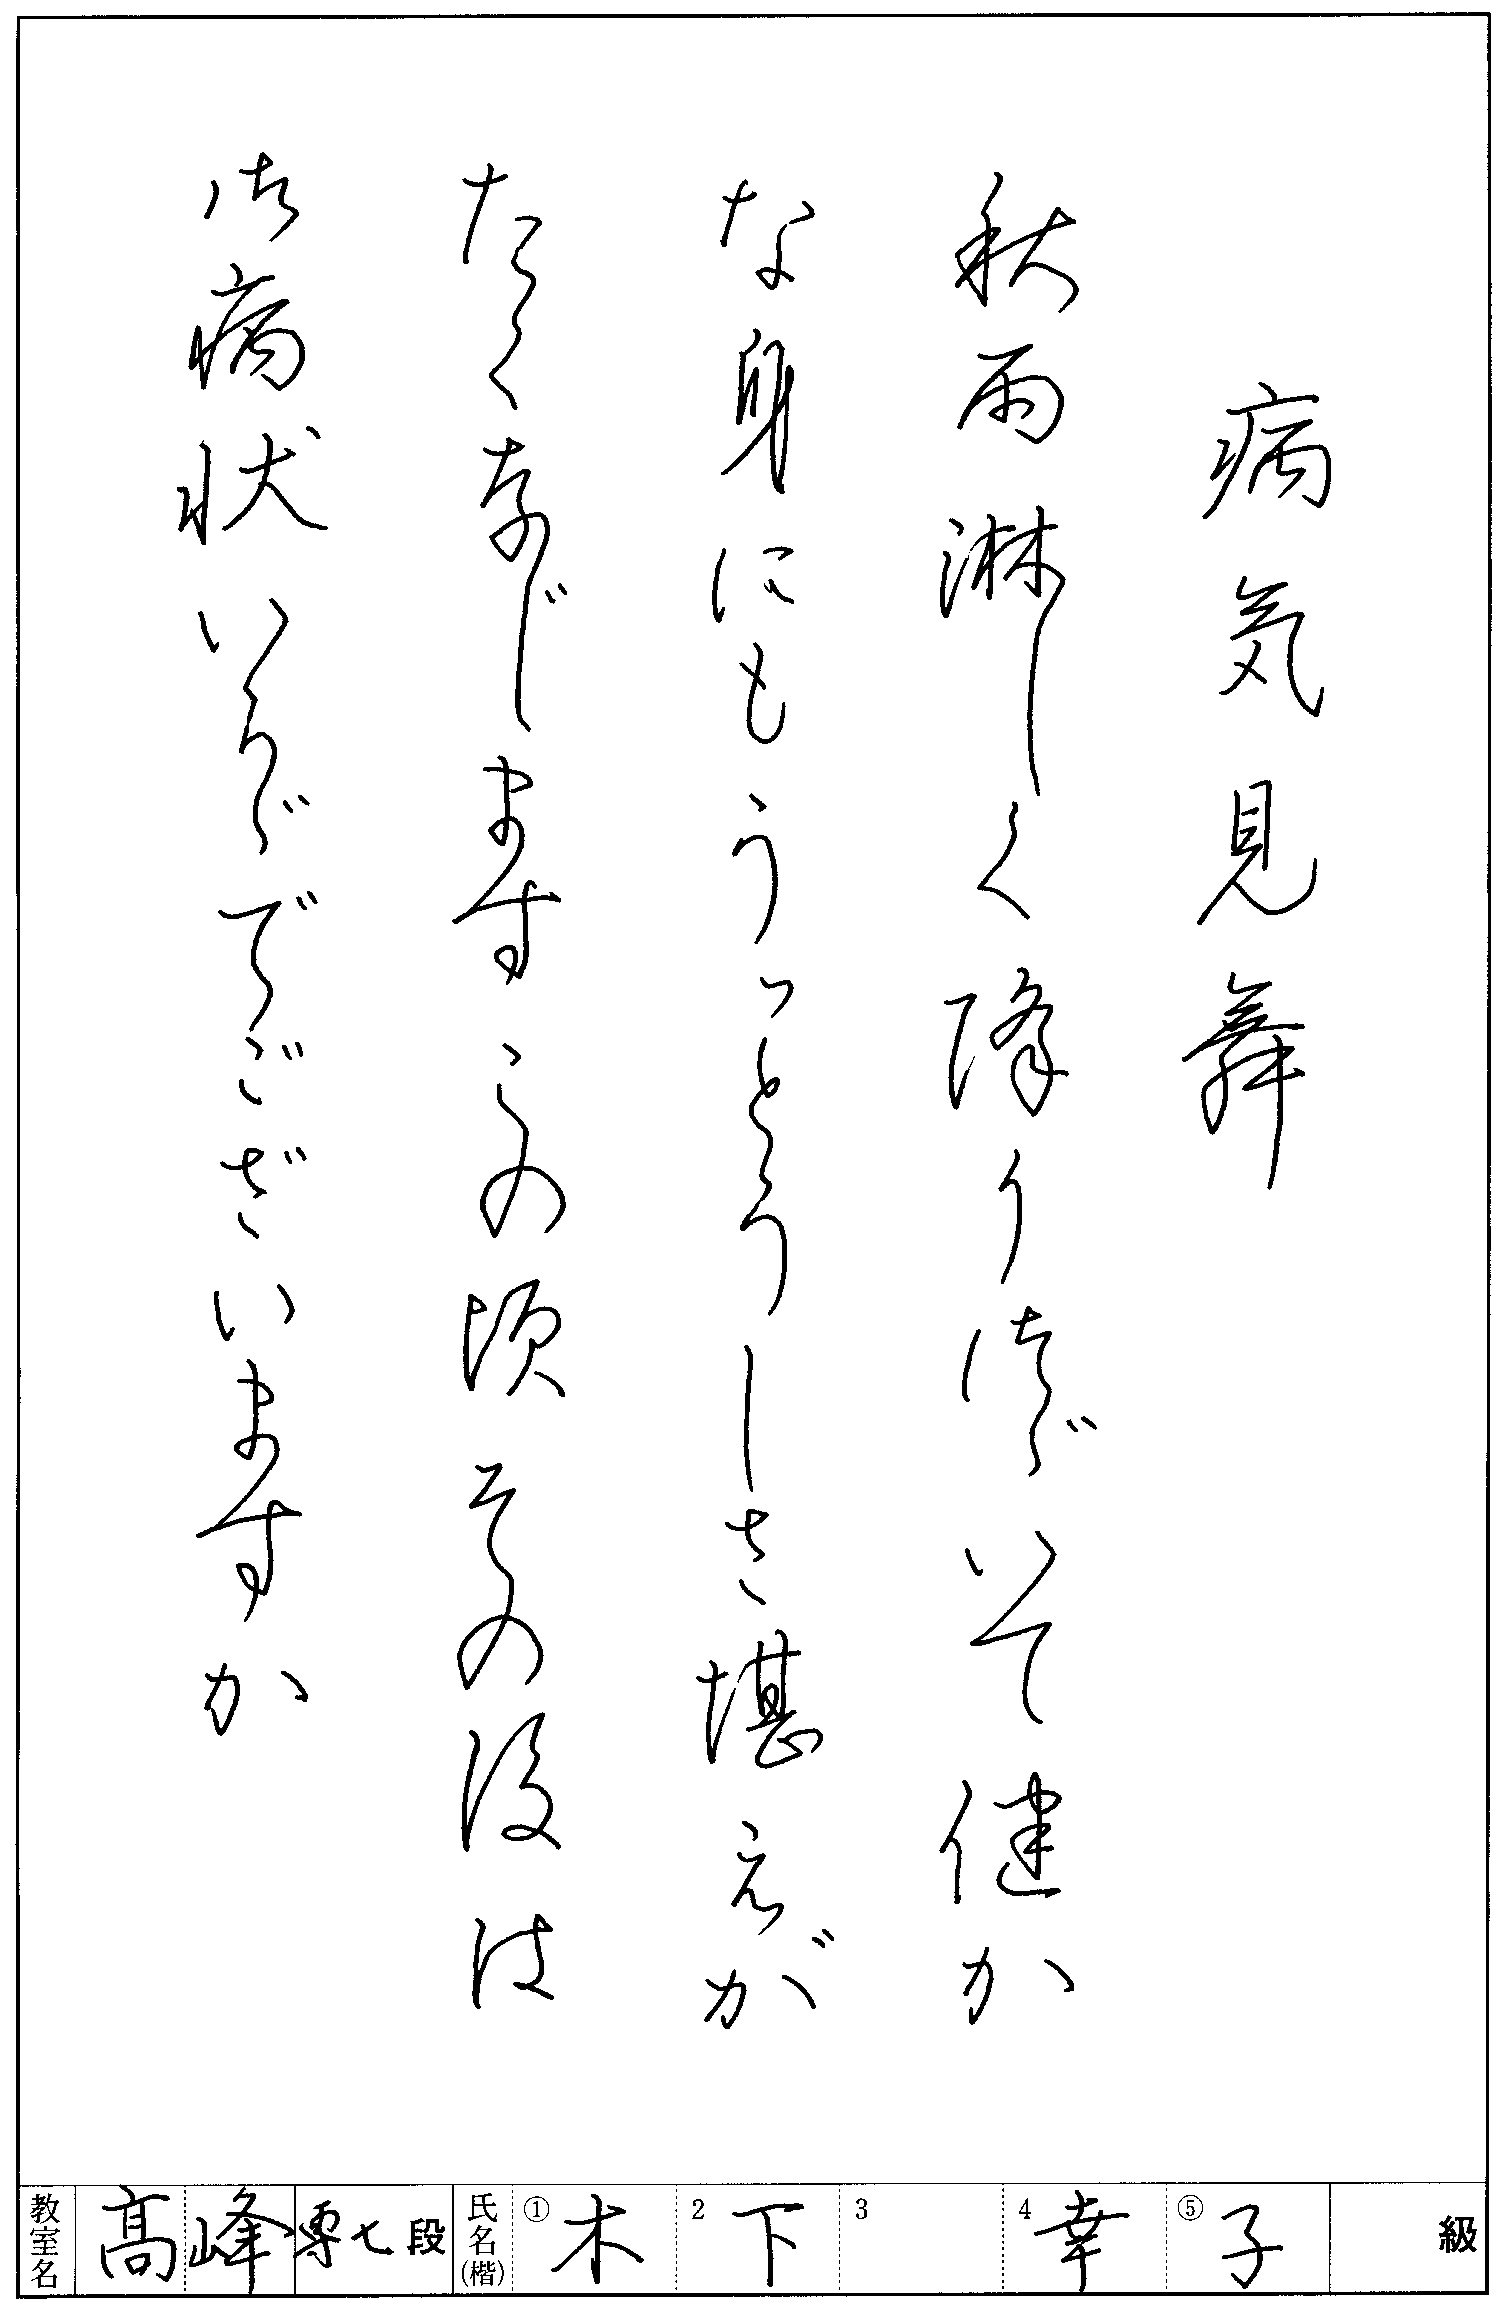 病気見舞
秋雨淋しく降りつづいて健か
な身にもうっとうしさ堪えが
たく存じますこの頃その後は
御病状いかがでございますか
教室名 高峰 専七段 氏名(楷) ①木 2下 3 4幸 ⑤子 級